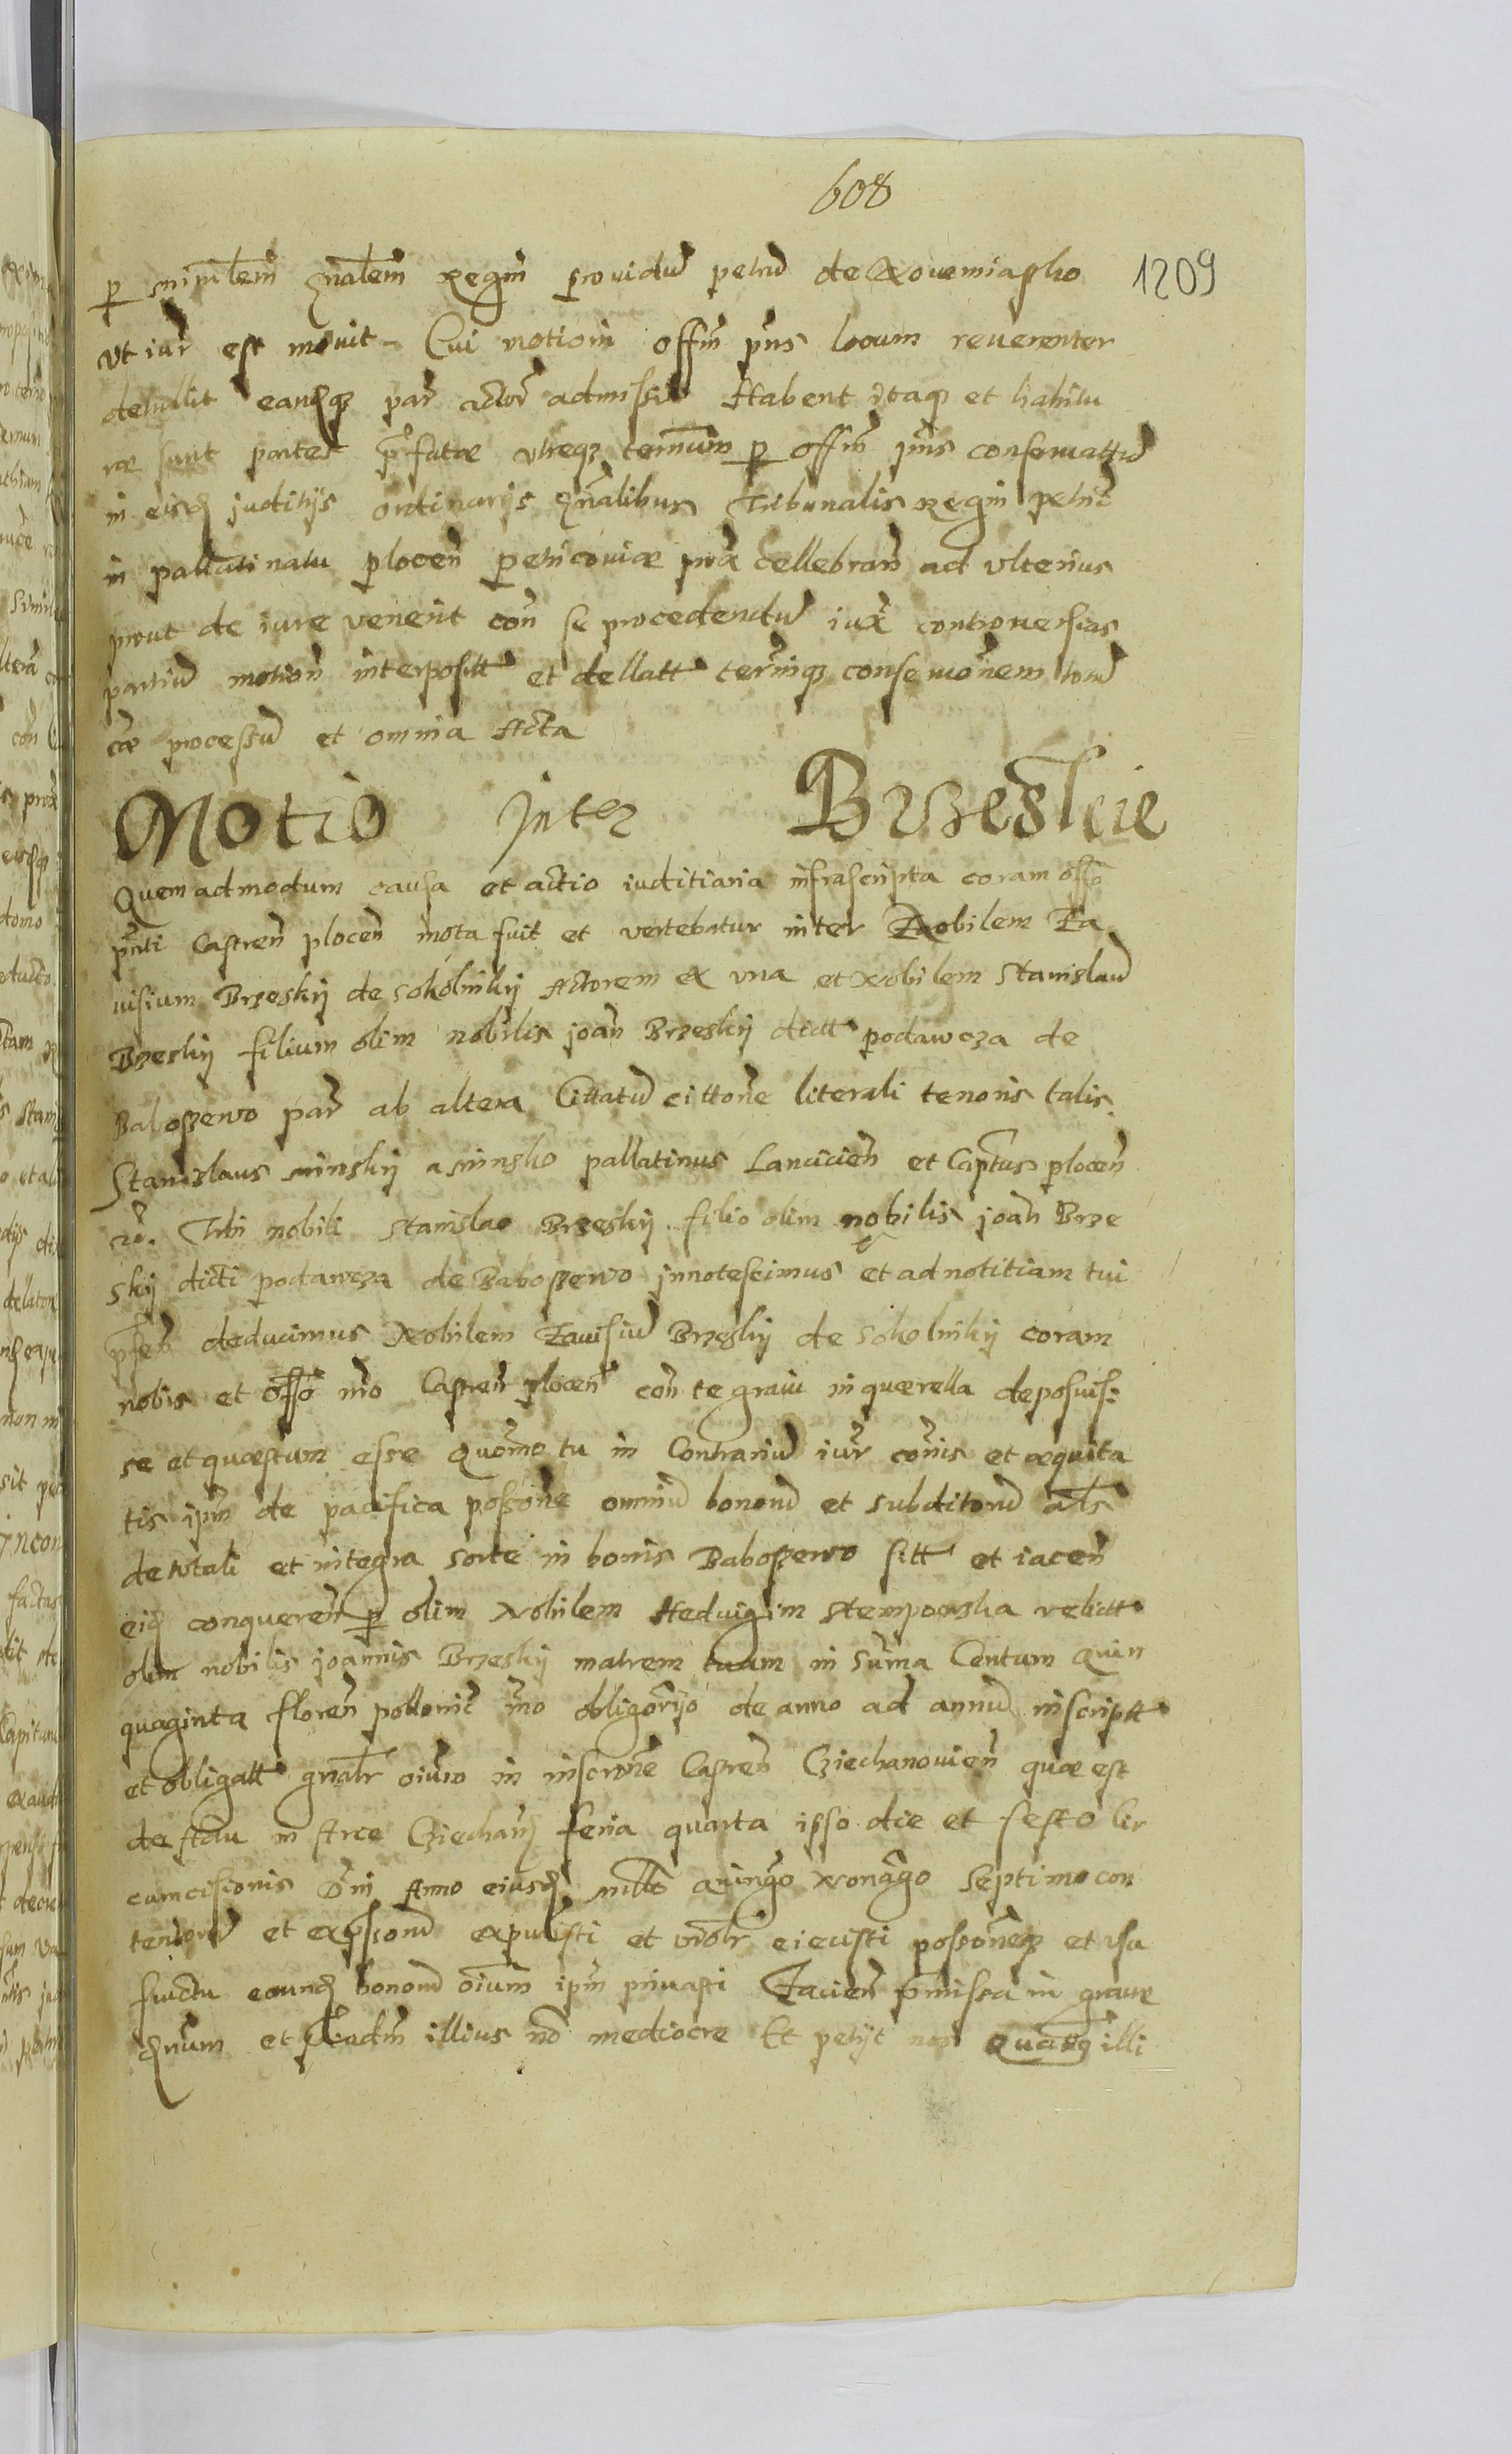 608
1209
p minrlem gnalem Regni providu petru de Nouemiasho
vt iur est mouit. Cui motioni offm pns locum reuerenter
detullit eandqz par actor admissit Habent itaqz et habitu
ræ sunt partes præfatæ vtreqz terminum p offm pns conseruattu
in eisd juditijs ordinarijs gnalibus Tribunalis Regni petric
in pallatinatu plocen petricoviæ prox cellebran ad vlterius
prout de iure venerit con se procedendu iux controuersias
partiu motion interposit et dellatt terminqz conseruonem totu
cæ processu et omnia Acta
Motio Inter Brzeskie
Quemadmodum causa et actio iuditiaria infrascripta coram offo
pnti Castren plocen mota fuit et vertebatur inter Nobilem Za
uisium Brzeskij de Sokolnikij Actorem ex vna et Nobilem Stanislau
Brzeskij filium olim nobilis joan Brzeskij dictt podawcza de
Baboszewo par ab altera Cittatu cittone literali tenoris talis.
Stanislaus minskij a minsko pallatinus Lancicien et Captus plocen
rc. Tibi nobili Stanislao Brzeskij filio olim nobilis joan Brze
skij dicti podawcza de Baboszewo jnnotescimus et ad notitiam tui
pfen deducimus Nobilem Zauisiu Brzeskij de Sokolnikij coram
nobis et offo nro Castren plocen con te graui in quærella deposuis:
se et quæstum esse Quomo tu in Contrariu iur cois et æquita
tis ipm de pacifica possone omniu bonoru et subditoru als
de totali et integra sorte in bonis Baboszewo sitt et iacen
eid conqueren p olim Nobilem Hedvigim Stempowska relictt
olim nobilis joannis Brzeskij matrem tuam in suma Centum Quin
quaginta floren pollonic mo obligorio de anno ad annu inscriptt
et obligatt gnalr oiuo in inscrone Castren Cziechanovien quæ est
de actu in Arce Cziechan feria quarta ipso die et festo Cir
cumcisionis Dni Anno eiusd millo Quingo Nonago Septimo con
tentoru et expssoru expulisti et violr eiecisti possoneqz et vsu
fructu eorund bonoru oium ipm priuasti Facien pmissa in graue
dnum et piudm illius no mediocre Et petijt nos Quateq illi